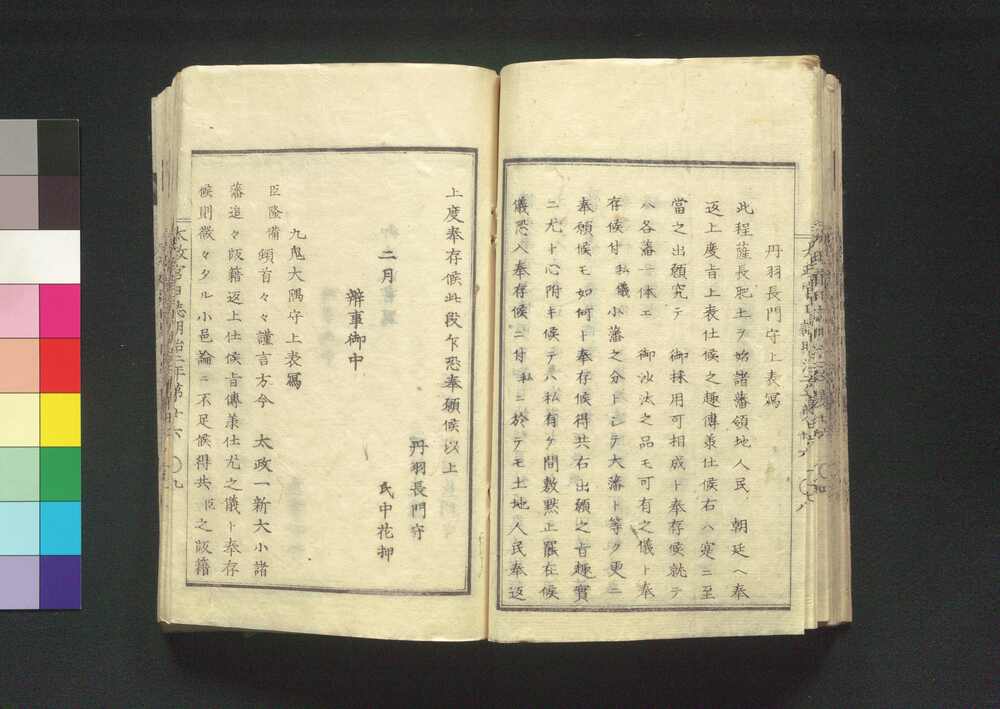 丹羽長門守上表寫
此程薩長肥土ヲ始諸藩領地人民朝廷ヘ奉
返上度旨上表仕候之趣傳承仕候右ハ寔ニ至
當之出願究テ御採用可相成ト奉存候就テ
ハ各藩一体エ御沙汰之品モ可有之儀ト奉
存候付私儀小藩之分トシテ大藩ト等ク更ニ
奉願候モ如何ト奉存候得共右出願之旨趣實
ニ尤ト心附キ候テハ私有ケ間敷黙止罷在候
儀恐入奉存候ニ付私ニ於テモ土地人民奉返
上度奉存候此段乍恐奉願候以上
丹羽長門守
二月　氏中花押
辨事御中
九鬼大隅守上表寫
臣隆備頓首々々謹言方今太政一新大小諸
藩追々版籍返上仕候旨傳承仕尤之儀ト奉存
候則微々タル小邑論ニ不足候得共臣之版籍
太政官日誌明治二年第十六
〇九